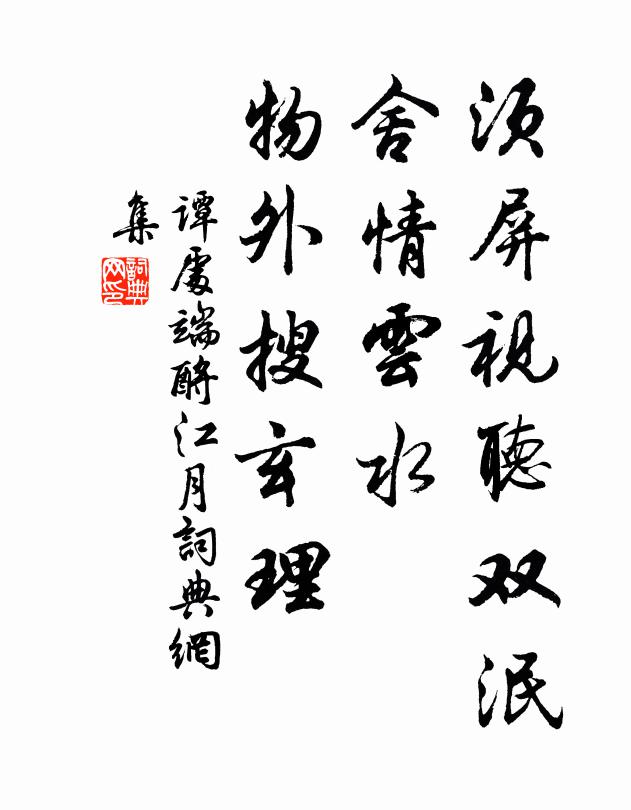 须屏視聽双泯
舍情雲水
物外搜玄理
譚處端酹江月詞典網
集
詞典网印